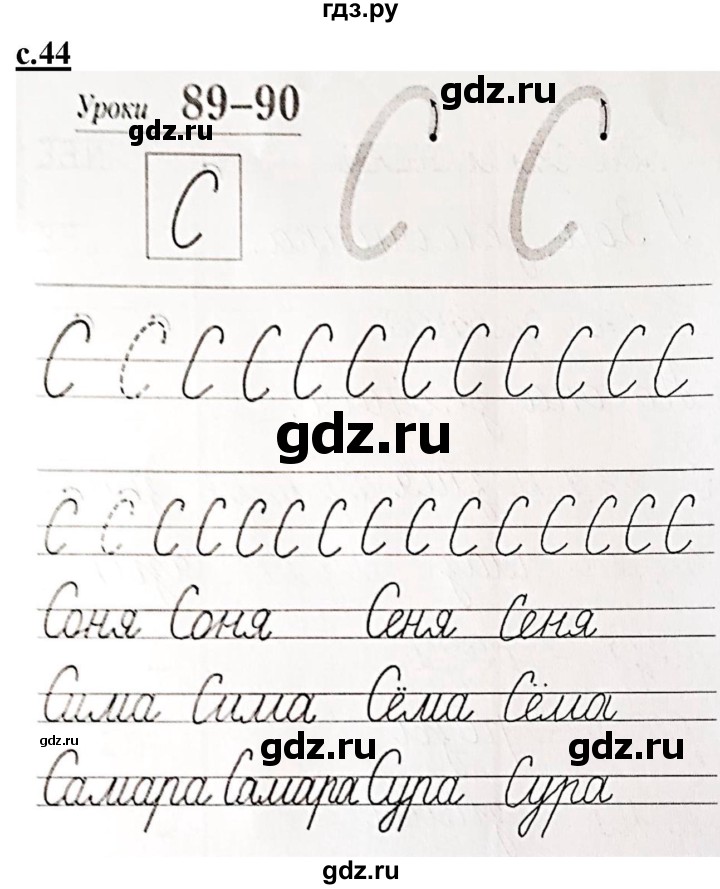 гдз.ру
с.44
Уроки 89–90
gdz.ru
gdz.ru
С С
С
С С С С С С С С С С С С
gdz.ru
С С С С С С С С С С С С С С
Соня Соня Сеня Сеня
Сима Сима Сёма Сёма
gdz.ru gdz.ru gdz.ru
Самара Самара Сура Сура
gdz.ru